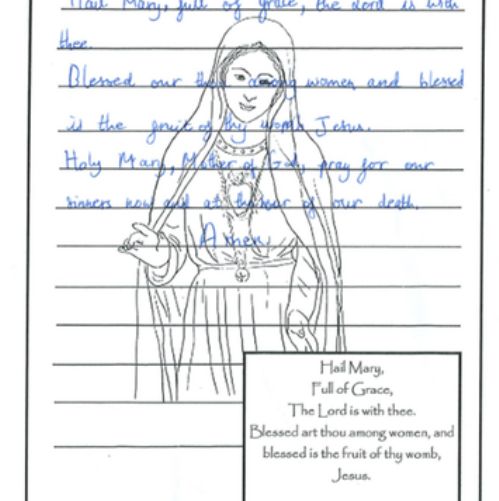 Hail Mary, full of grace, the Lord is with
thee.
Blessed our thou among women and blessed
is the fruit of thy womb Jesus.
Holy Mary, Mother of God, pray for our
sinners now and at the hour of our death.
Amen
Hail Mary,
Full of Grace,
The Lord is with thee.
Blessed art thou among women, and
blessed is the fruit of thy womb,
Jesus.